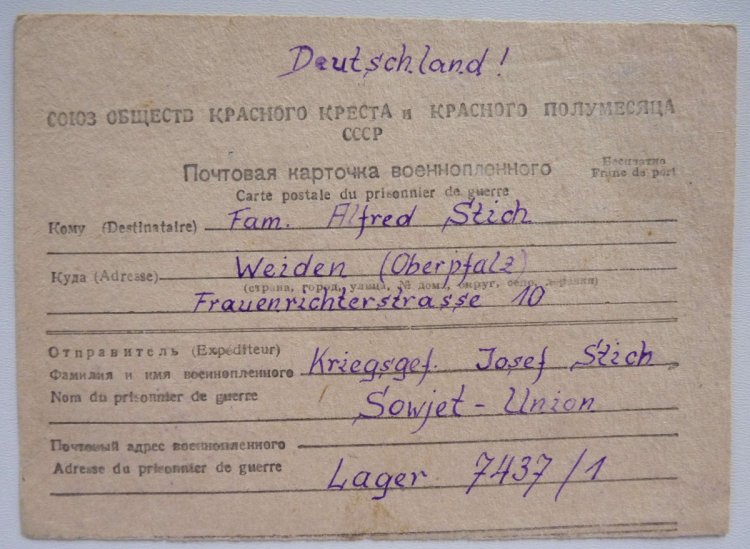 Deutschland!
СОЮЗ ОБЩЕСТВ КРАСНОГО КРЕСТА и КРАСНОГО ПОЛУМЕСЯЦА
СССР
Почтовая карточка военнопленного
Бесплатно
Carte postale du prisonnier de guerre
Franc de port
Кому (Destinataire) Fam. Alfred Stich
Куда (Adresse) Weiden (Oberpfalz)
(страна, город, улица, № дома, округ, село, деревня)
Frauenrichterstrasse 10
Отправитель (Expéditeur)
Фамилия и имя военнопленного Kriegsgef. Josef Stich
Nom du prisonnier de guerre
Sowjet-Union
Почтовый адрес военнопленного
Adresse du prisonnier de guerre Lager 7437/1